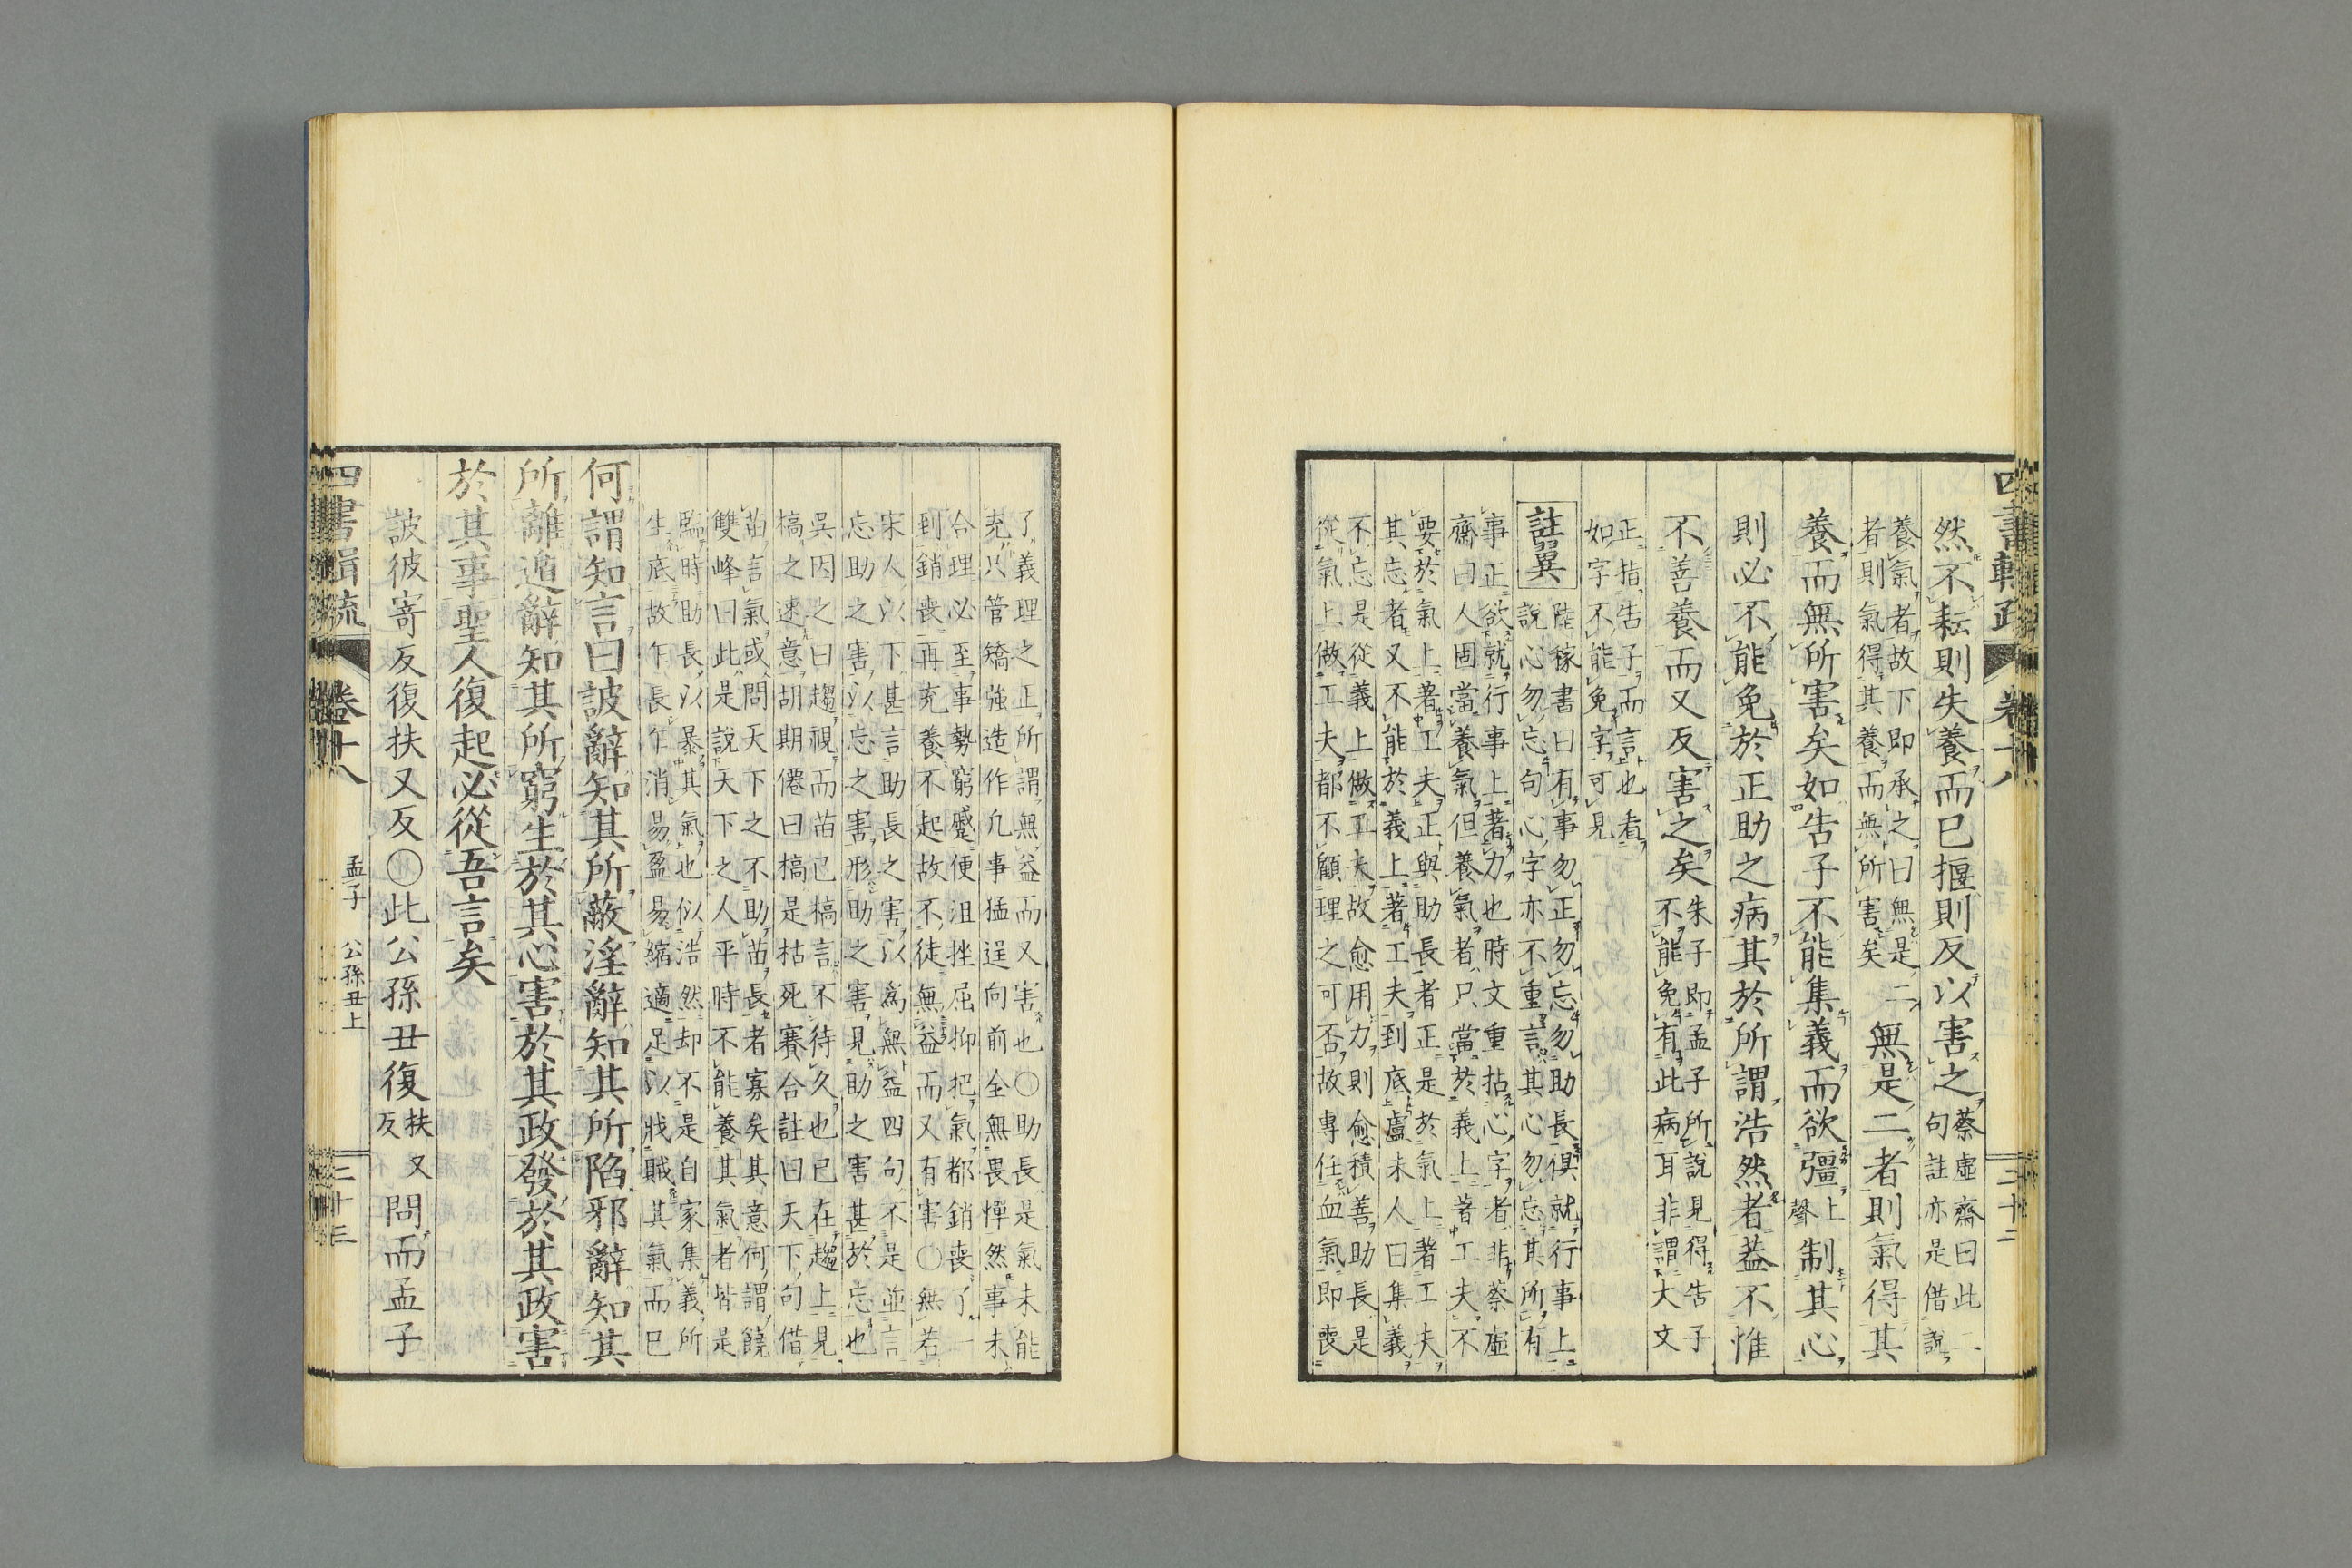 四書輯疏 卷十八 三十二
然不耘則失養而已揠則反以害之
蔡虛齋曰此二
句註亦是借說
養氣者故下即承之曰無是二
者則氣得其養而無所害矣
無是二者則氣得其
養而無所害矣如告子不能集義而欲彊
上
聲
制其心
則必不能免於正助之病其於所謂浩然者葢不惟
不善養而又反害之矣
朱子即孟子所說見得告子
不能免有此病耳非謂大文
正指告子而言也看
如字不能免字可見
註翼
陸稼書曰有事勿正勿忘勿助長俱就行事上
說心勿忘句心字亦不重言其心勿忘其所有
事正欲就行事上著力也時文重拈心字者非蔡虛
齋曰人固當養氣但養氣者只當於義上著工夫不
要於氣上著工夫正與助長者正是於氣上著工夫
其忘者又不能於義上著工夫到底盧未人曰集義
不忘是從義上做工夫故愈用力則愈積善助長是
從氣上做工夫都不顧理之可否故專任血氣即喪
了義理之正所謂無益而又害也〇助長是氣未能
充只管矯強造作凡事猛逞向前全無畏憚然事未
合理必至事勢窮蹙便沮挫屈抑把氣都銷喪了一
到銷喪再充養不起故不徒無益而又有害〇無若
宋人以下甚言助長之害以爲無益四句不是並言
忘助之害以忘之害形助之害見助之害甚於忘也
吳因之曰趨視而苗已槁言不待久也已在趨上見
槁之速意胡期僊曰槁是枯死賽合註曰天下句借
苗言氣或問天下之不助苗長者寡矣其意何謂饒
雙峰曰此是說天下之人平時不能養其氣者皆是
臨時助長以暴其氣也似浩然却不是自家集義所
生底故乍長乍消易盈易縮適足以戕賊其氣而已
何謂知言曰詖辭知其所蔽淫辭知其所陷邪辭知其
所離遁辭知其所窮生於其心害於其政發於其政害
於其事聖人復起必從吾言矣
詖彼寄反復扶又反〇此公孫丑復
扶又
反
問而孟子
四書輯疏 卷十八 孟子 公孫丑上 三十三